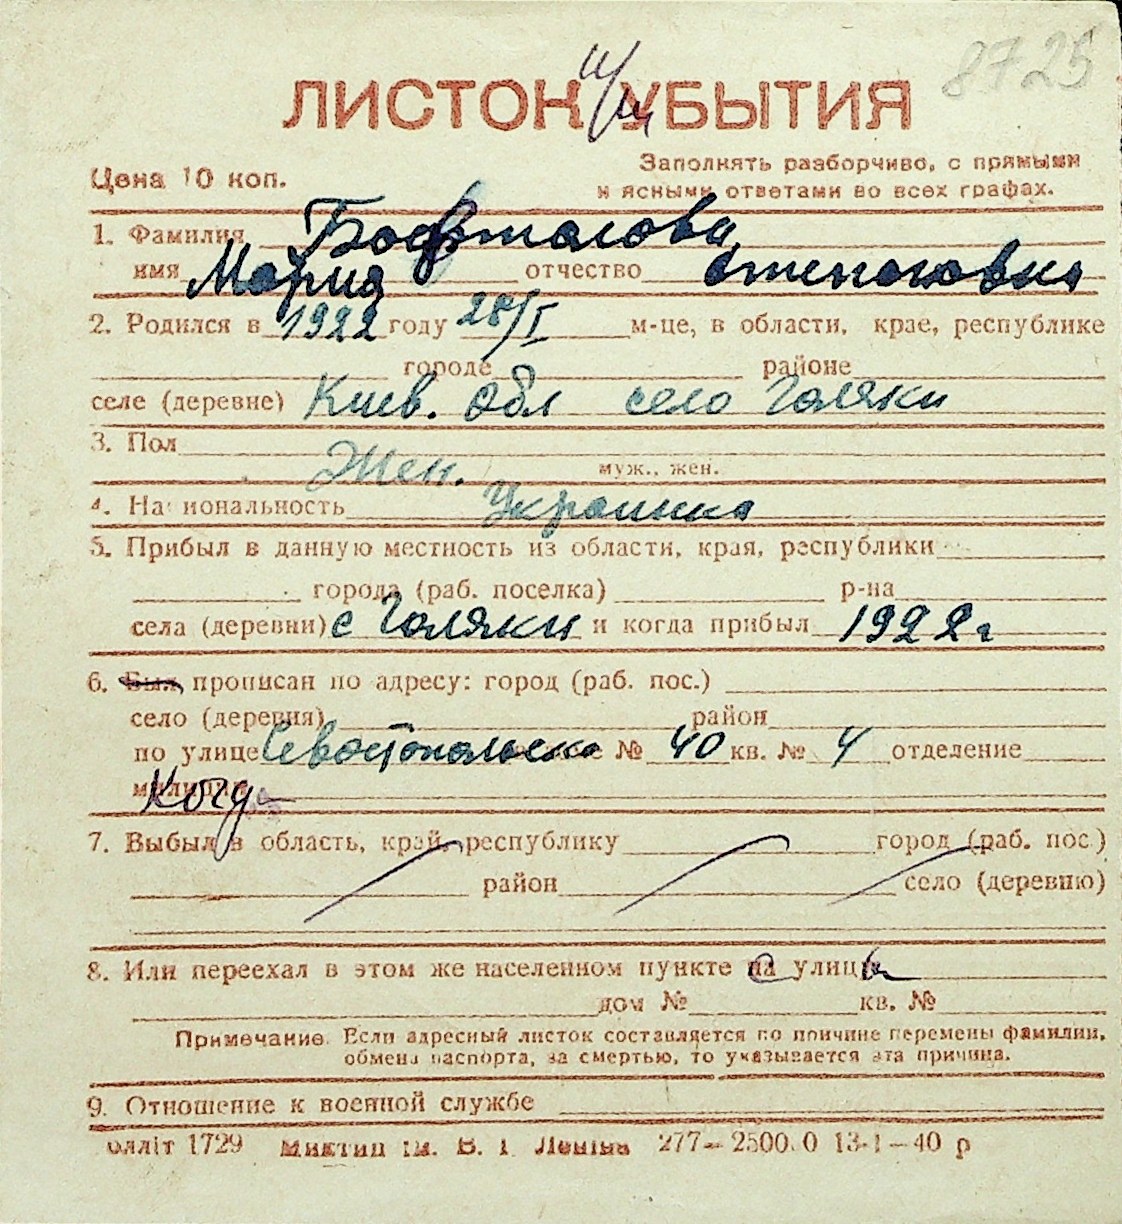 8725
ЛИСТОК УБЫТИЯ
Цена 10 коп.
Заполнять разборчиво, с прямыми
и ясными ответами во всех графах.
1. Фамилия
имя Мария отчество Степановна
2. Родился в 1922 году 28/I м-це, в области, крае, республике
городе районе
селе (деревне) Киев. обл село Голяки
3. Пол Жен.
муж., жен.
4. Национальность Украинка
5. Прибыл в данную местность из области, края, республики
города (раб. поселка) р-на
села (деревни) с Голяки и когда прибыл 1922 г
6. Был прописан по адресу: город (раб. пос.)
село (деревня) район
по улице № 40 кв. № 4 отделение
милиции
7. Выбыл в область, край, республику город (раб. пос.)
район село (деревню)
8. Или переехал в этом же населенном пункте на улицу
дом № кв. №
Примечание. Если адресный листок составляется по причине перемены фамилии,
обмена паспорта, за смертью, то указывается эта причина.
9. Отношение к военной службе
Оллiт 1729 Миктип iм. В. I. Ленiна 277—2500.0 13-1—40 р